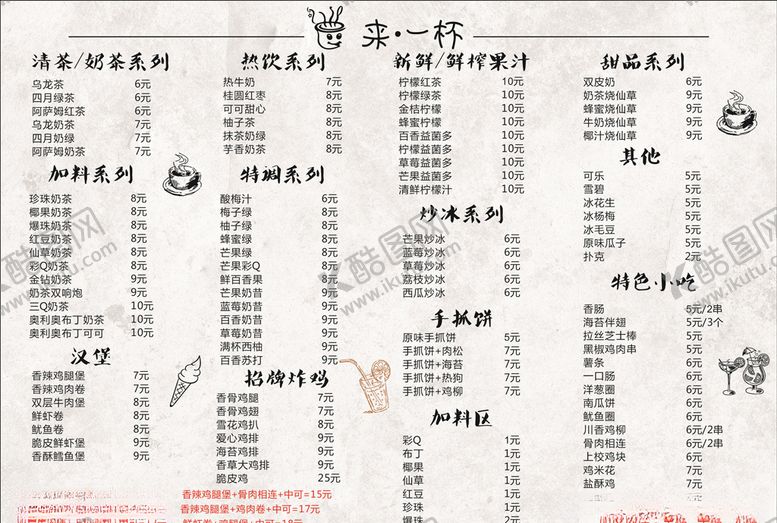 来·一杯
清茶/奶茶系列
乌龙茶 6元
四月绿茶 6元
阿萨姆红茶 6元
乌龙奶茶 7元
四月奶绿 7元
阿萨姆奶茶 7元
加料系列
珍珠奶茶 8元
椰果奶茶 8元
爆珠奶茶 8元
红豆奶茶 8元
仙草奶茶 8元
彩Q奶茶 8元
金钻奶茶 9元
奶茶双响炮 9元
三Q奶茶 10元
奥利奥布丁奶茶 10元
奥利奥布丁可可 10元
汉堡
香辣鸡腿堡 7元
香辣鸡肉卷 7元
双层牛肉堡 8元
鲜虾卷 8元
鱿鱼卷 8元
脆皮鲜虾堡 9元
香酥鳕鱼堡 9元
热饮系列
热牛奶 7元
桂圆红枣 8元
可可甜心 8元
柚子茶 8元
抹茶奶绿 8元
芋香奶茶 8元
特调系列
酸梅汁 6元
梅子绿 8元
柚子绿 8元
蜂蜜绿 8元
芒果绿 8元
芒果彩Q 8元
鲜百香果 8元
芒果奶昔 9元
蓝莓奶昔 9元
百香奶昔 9元
草莓奶昔 9元
满杯西柚 9元
百香苏打 9元
招牌炸鸡
香骨鸡腿 7元
香骨鸡翅 7元
雪花鸡扒 8元
爱心鸡排 9元
海苔鸡排 9元
香草大鸡排 9元
脆皮鸡 25元
香辣鸡腿堡+骨肉相连+中可=15元
香辣鸡腿堡+鸡肉卷+中可=17元
鲜虾卷+鸡腿堡+中可=18元
新鲜/鲜榨果汁
柠檬红茶 10元
柠檬绿茶 10元
金桔柠檬 10元
蜂蜜柠檬 10元
百香益菌多 10元
蓝莓益菌多 10元
草莓益菌多 10元
芒果益菌多 10元
清鲜柠檬汁 10元
炒冰系列
芒果炒冰 6元
蓝莓炒冰 6元
草莓炒冰 6元
荔枝炒冰 6元
西瓜炒冰 6元
手抓饼
原味手抓饼 5元
手抓饼+肉松 7元
手抓饼+海苔 7元
手抓饼+热狗 7元
手抓饼+鸡柳 7元
加料区
彩Q 1元
布丁 1元
椰果 1元
仙草 1元
红豆 1元
珍珠 1元
爆珠 1元
甜品系列
双皮奶 6元
奶茶烧仙草 9元
蜂蜜烧仙草 9元
牛奶烧仙草 9元
椰汁烧仙草 9元
其他
可乐 5元
雪碧 5元
冰花生 5元
冰杨梅 5元
冰毛豆 5元
原味瓜子 5元
扑克 2元
特色小吃
香肠 5元/2串
海苔伴翅 5元/3个
拉丝芝士棒 5元
黑椒鸡肉串 5元
薯条 6元
一口肠 6元
洋葱圈 6元
南瓜饼 6元
鱿鱼圈 6元
川香鸡柳 6元/2串
骨肉相连 6元/2串
上校鸡块 6元
鸡米花 7元
盐酥鸡 7元
酷图网
www.ikutu.com